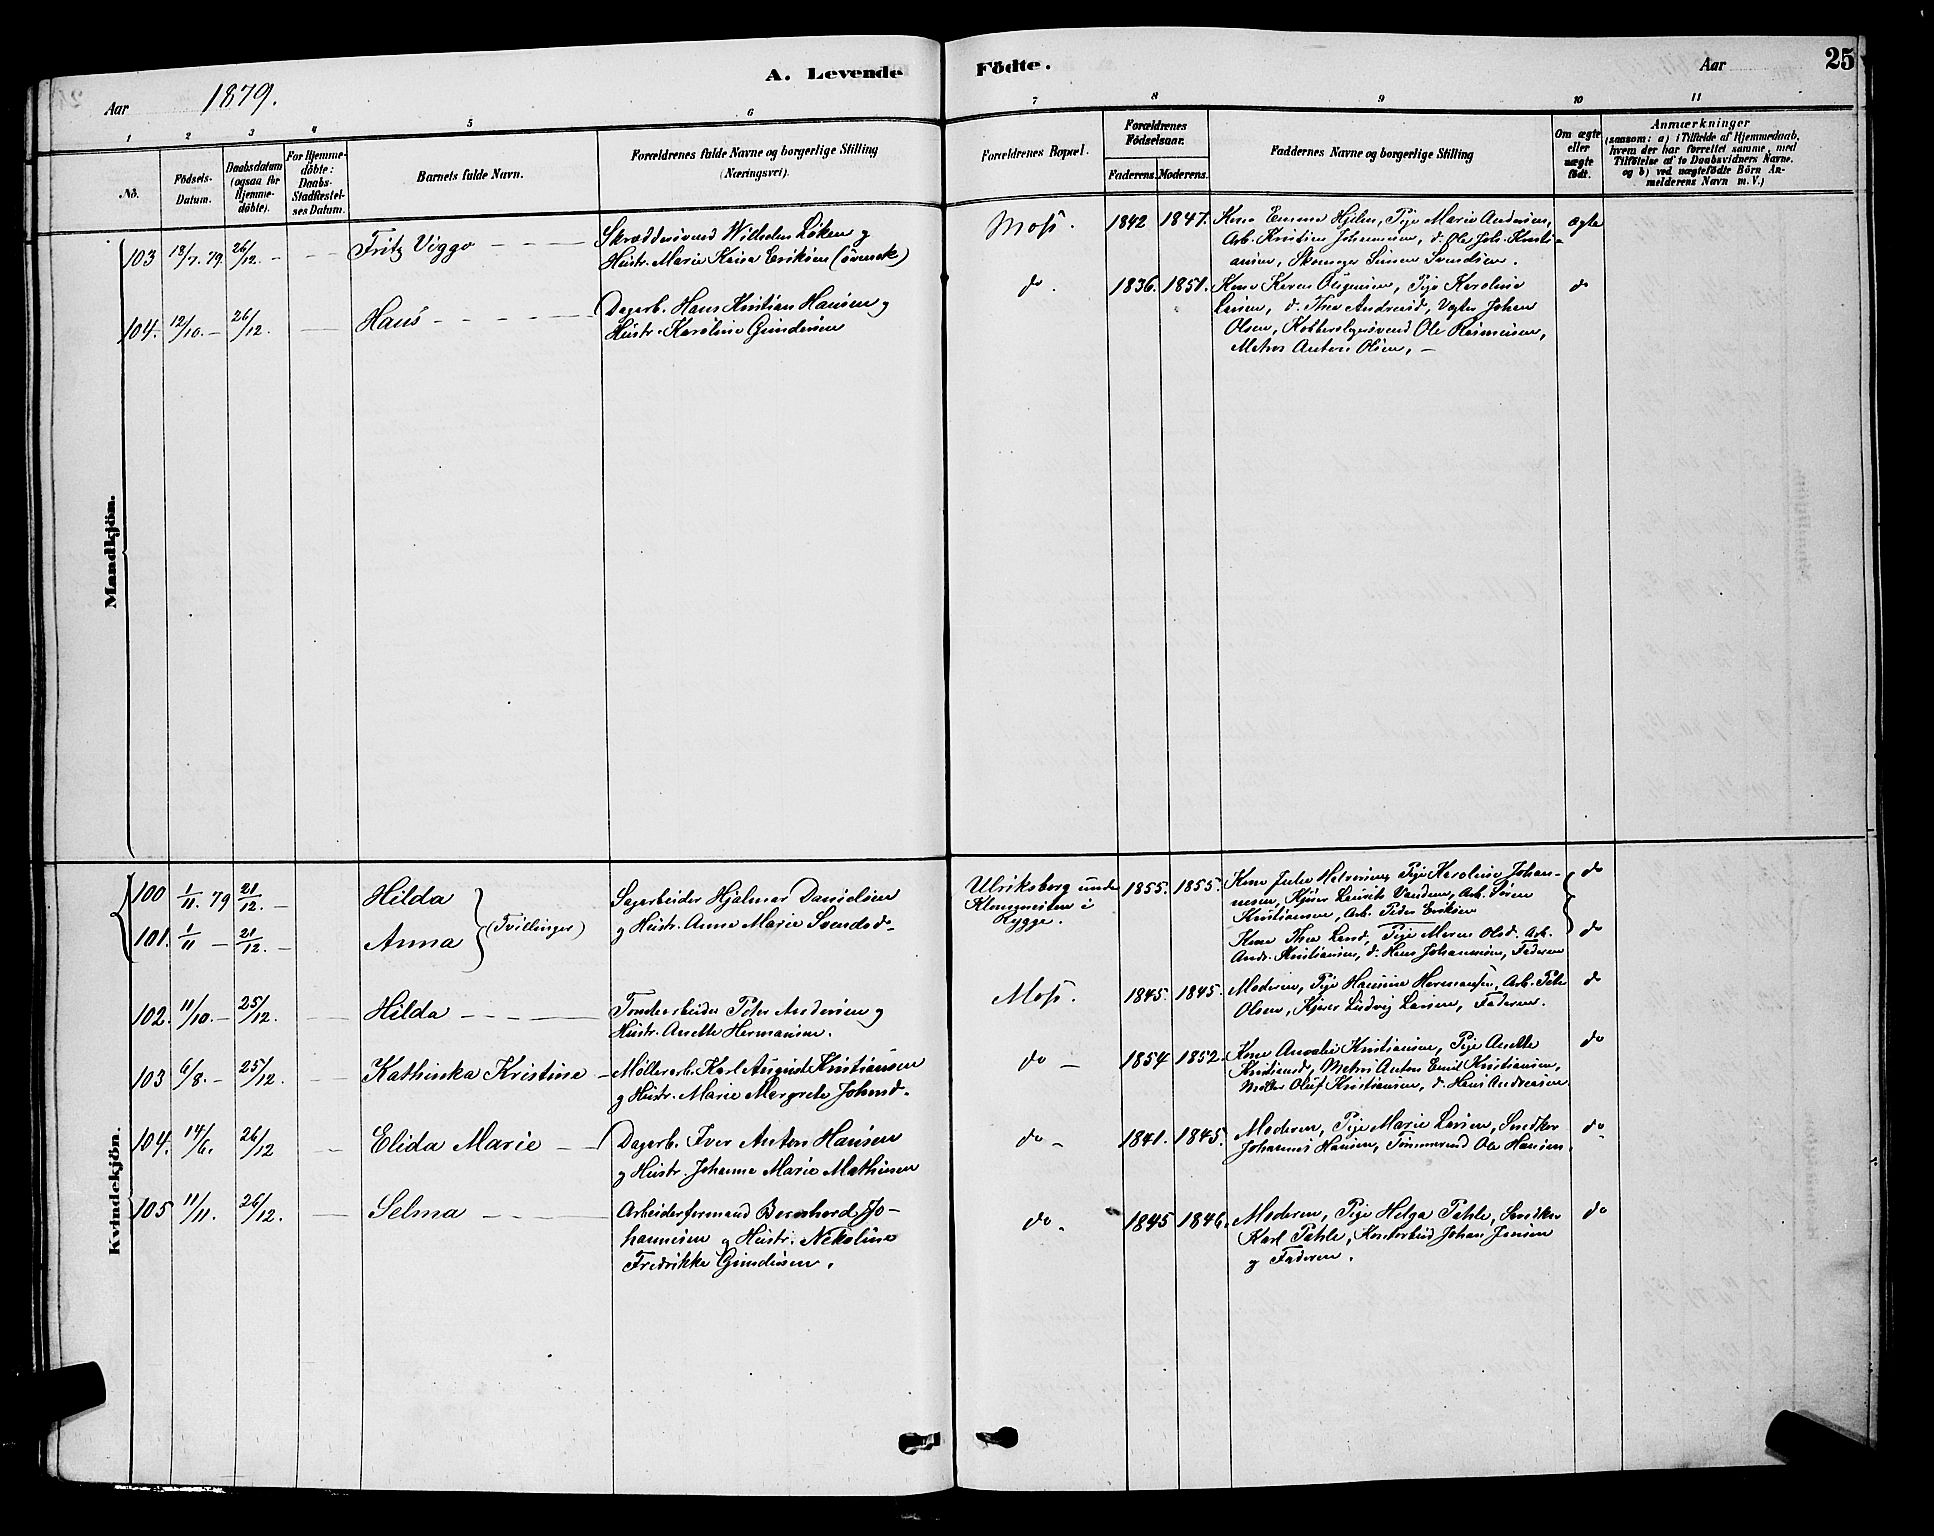 A. Levende Födte.
25
Aar 1879.
Aar
1 2 3 4 5 6 7 8 9 10 11
No.
Födsels-
Datum.
Daabsdatum
(ogsaa for
Hjemme-
döbte).
For Hjemme-
döbte:
Daabs-
Stadfæstel-
ses Datum.
Barnets fulde Navn.
Forældrenes fulde Navne og borgerlige Stilling
(Næringsvei).
Forældrenes Bopæl.
Forældrenes
Födselsaar.
Faderens. Moderens.
Faddernes Navne og borgerlige Stilling
Om ægte
eller
uægte
födt.
Anmærkninger
(saasom: a) i Tilfælde af Hjemmedaab,
hvem der har forrettet samme, med
Tilföielse af to Daabsvidners Navne.
og b) ved uægtefödte Börn An-
melderens Navn m. V.)
Mandkjön.
103 12/7. 79. 26/12. - Fritz Viggo
Skrædersvend Wilhelm Löken og
Hustr. Marie Kaisa Eriksen (svensk)
Moss. 1842 1847.
Kone Emma Hjelm, Pige Marie Andersen,
Arb. Kristian Johannesen, d. Ole Joh. Kristi-
ansen, Skomager Simen Svendsen.
Ægte
104. 12/10. - 26/12. Hans
Dagarb. Hans Kristian Hansen og
Hustr. Karoline Gundersen
do. 1836. 1851.
Kone Karen Pige Karoline
Larsen, d. Thea Andreasd, Vægter Johan
Olsen, Kobberslagersvend Ole Rasmussen,
Matros Anton Olsen, -
do
Kvindekjön.
100 1/11. 79 21/12. - Hilda
101. 1/11 - 21/12. - Anna
(Tvillinger)
Sagarbeider Hjalmar Danielsen
og Hustr. Anne Marie Svendsd.
Ulriksborg under
i
Rygge.
1855. 1855.
Kone Julie Halvorsen, Pige Karoline Johan-
nesen, Kjører Laurits Arb. Søren
Kristiansen, Arb. Peder Eriksen
do
Kone Thea Lund, Pige Maren Olsd. Arb.
Andr. Kristiansen, d. Hans Johannesen, Faderen
do
102. 11/10. - 25/12. Hilda
Tomtearbeider Peter Andersen og
Hustr. Anette Hermansen.
Moss. 1845. 1845.
Moderen, Pige Hansine Hermansen, Arb. Peter
Olsen, Kjører Ludvig Larsen, Faderen.
do
103 6/8. - 25/12. Kathinka Kristine
Møllerarb. Karl August Kristiansen
og Hustr. Marie Margrete Johnsd.
do - 1854 1852.
Kone Amalie Kristiansen, Pige Anette
Kristiansd, Matros Anton Emil Kristiansen,
Møller Oluf Kristiansen, d. Hans Andreasen
do
104. 14/6. 26/12 Elida Marie
Dagarb. Iver Anton Hansen
og Hustr. Johanne Marie Mathisen
do - 1841. 1845.
Moderen, Pige Marie Larsen, Snedker
Johannes Hansen, Tømmermd Ole Hansen.
do
105 11/11. 26/12. Selma
Arbeiderformand Bernhard Jo-
hannesen og Hustr. Nikoline
Fredrikke Gundersen.
do. 1845 1846.
Moderen, Pige Helga Pahle, Snedker
Karl Pahle, Kontorbud Johan Jensen
og Faderen.
do